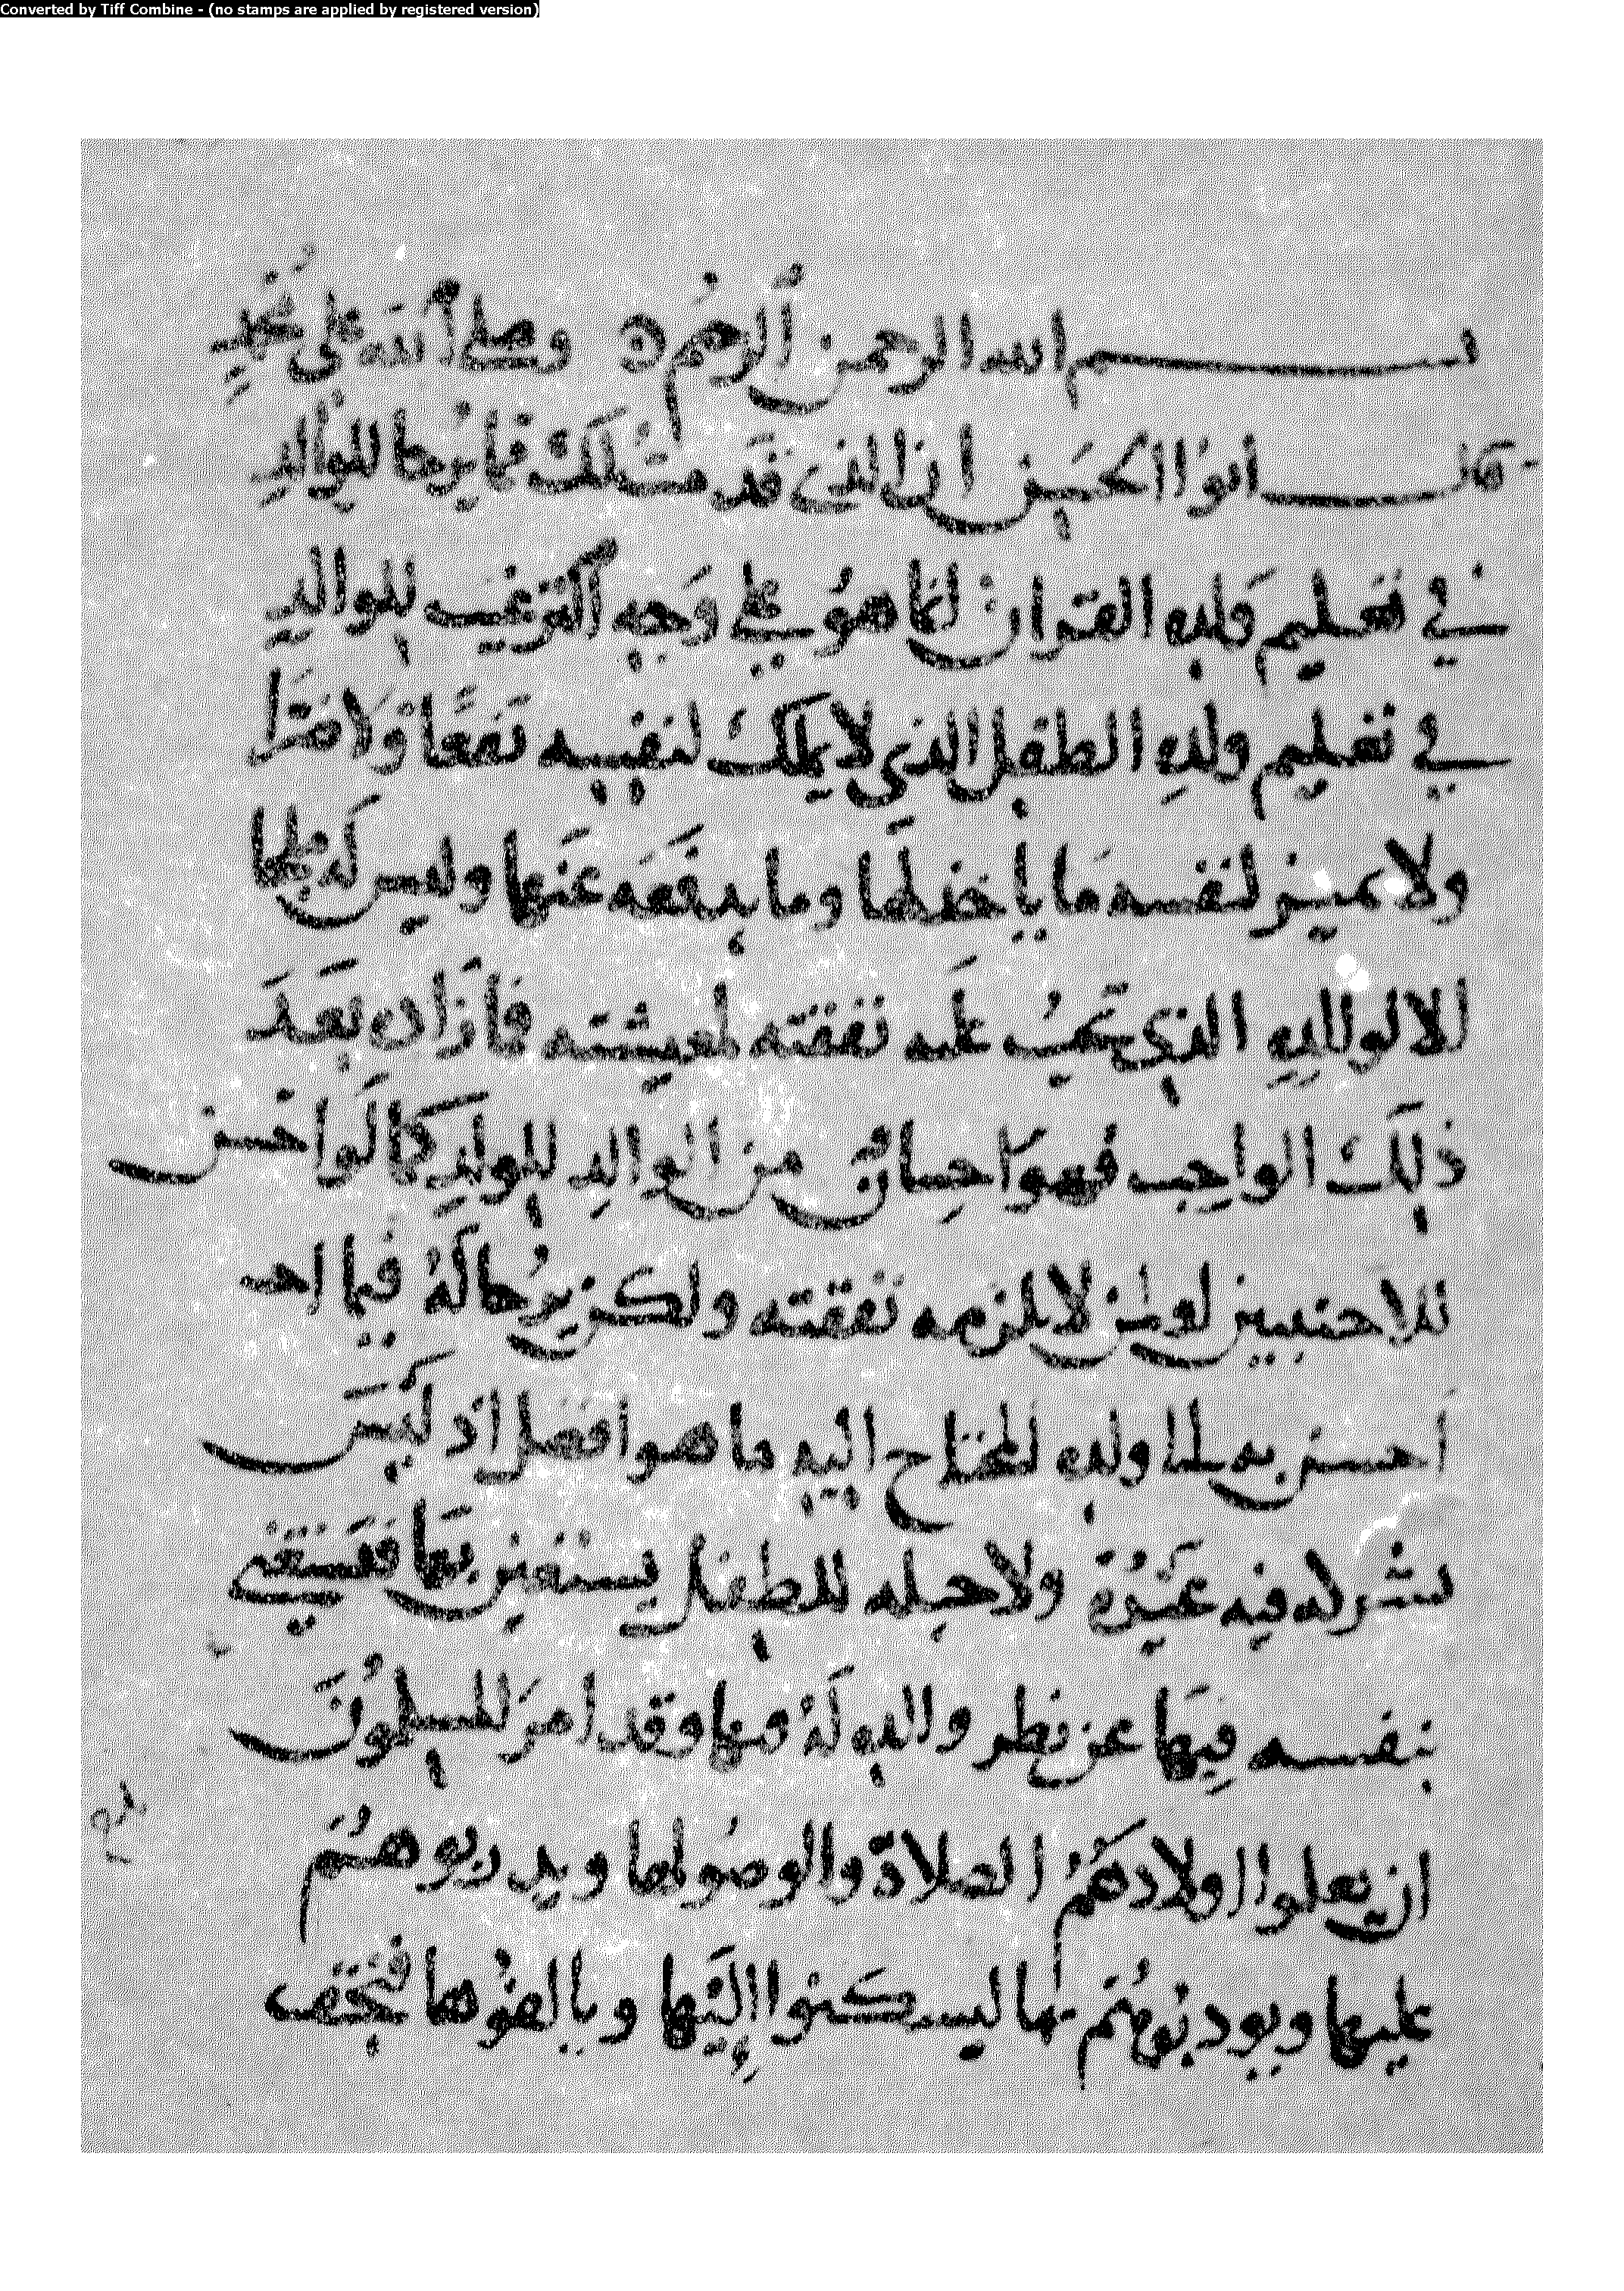 Converted by Tiff Combine - (no stamps are applied by registered version)
بسم الله الرحمن الرحيم وصلى الله على محمد
قال ابوا الحسن ان الذي قدمت لك مما يرجا للوالد
في تعليم ولده القرءان انما هو على وجه الترغيب للوالد
في تعليم ولده الطفل الذي لا يملك لنفسه نفعا ولا ضرا
ولا يميز لنفسه ما ياخذ لها وما يدفعه عنها وليس له ملجا
الا لوالده الذي تجب عليه نفقته لمعيشته فما زاد بعد
ذلك الواجب فهو احسان من الوالد للولد كما لو احسن
للاجنبيين او لمن لا يلزمه نفقته ولكن يرجا له فيما
احسن به الى ولده المحتاج اليه ما هو افضل اذ ليس
يشركه فيه غيره ولا حيله للطفل يستعين بها فيستغني
بنفسه فيها عن نظر والده له فيها وقد امر المسلمون
ان يعلموا اولادهم الصلاة والوضو لها ويدربوهم
عليها ويودبوهم بها ليسكنوا اليها ويالفوها فتخف